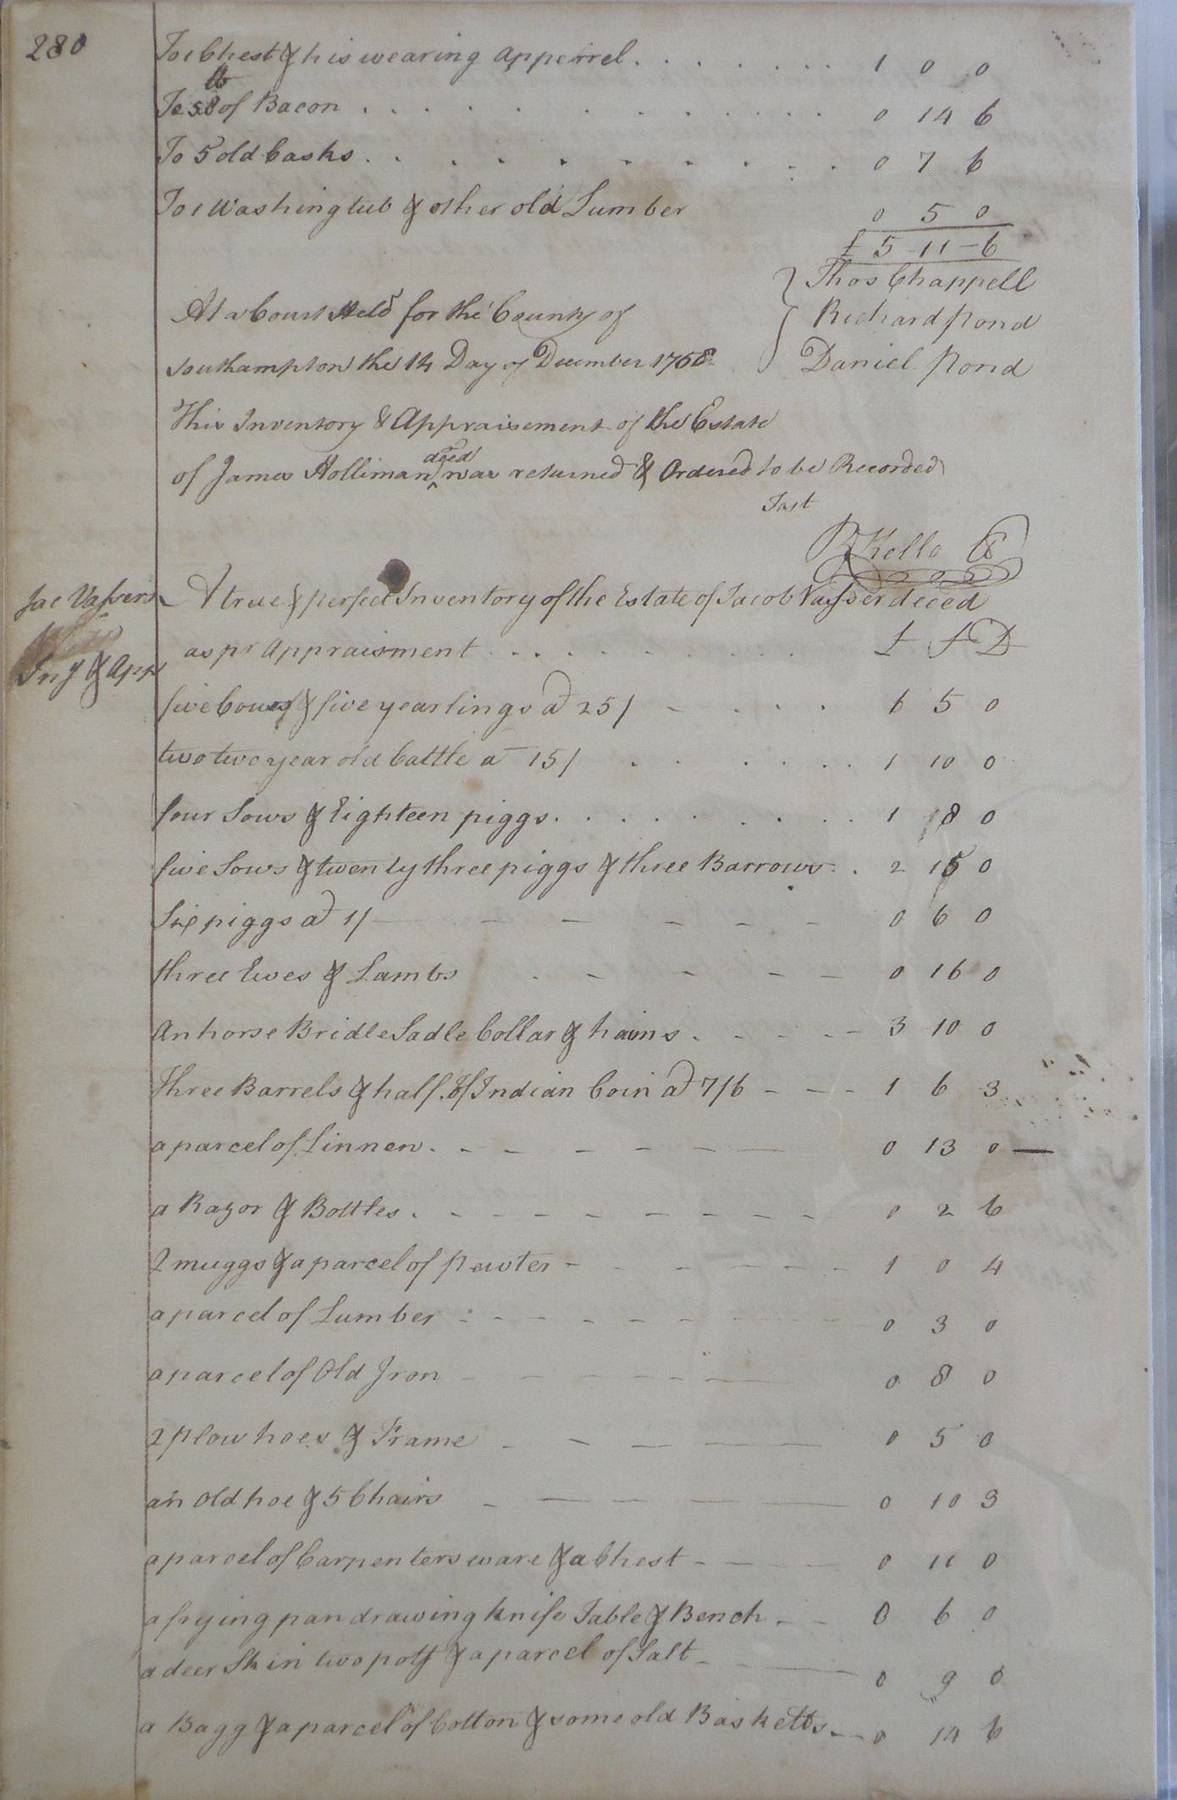 280
To 1 Chest & his wearing apperrel . . . . . . . 1 0 0
To 58 lb of Bacon . . . . . . . . . . 0 14 6
To 5 old Casks . . . . . . . . . . 0 7 6
To 1 Washing tub & other old Lumber 0 5 0
£ 5 - 11 - 6
Thos Chappell
At a Court Held for the County of Richard Pond
Southampton the 14 Day of December 1758 Daniel Pond
This Inventory & Appraisement of the Estate
of James Holliman decd was returned & Ordered to be Recorded
Test
R Kello
Jac Vassers
Iny & App
A true & perfect Inventory of the Estate of Jacob Vasser deced
as pr Appraisment . . . . . . . . . £ S D
five Cowes & five yearlings a 25/ - . . . . 6 5 0
two two year old Cattle a 15/ . . . . . . 1 10 0
four Sows & Eighteen piggs . . . . . . . . . 1 8 0
five Sows & twenty three piggs & three Barrows . . 2 15 0
Six piggs a 1/ - - - - - - - 0 6 0
three Ewes & Lambs . - - - - - 0 16 0
An horse Bridle Sadle Collar & haims . - - - - 3 10 0
Three Barrels & half of Indian Coin a 7/6 - - - 1 6 3
a parcel of Linnen . - - - - - - - 0 13 0 -
a Razor & Bottles . - - - - - - - - - 0 2 6
2 muggs & a parcel of Pewter - - - - - - - 1 0 4
a parcel of Lumber : - - - - - - - 0 3 0
a parcel of Old Iron - - - - - - 0 8 0
2 plow hoes & Frame - - - - - 0 5 0
an old hoe & 5 Chairs - - - - - 0 10 3
a parcel of Carpenters ware & a Chest - - - 0 11 0
a frying pan drawing knife Table & Bench . - - 0 6 0
a deer Skin two pots & a parcel of Salt - - - 0 9 0
a Bagg & a parcel of Cotton & some old Basketts - - 0 14 6